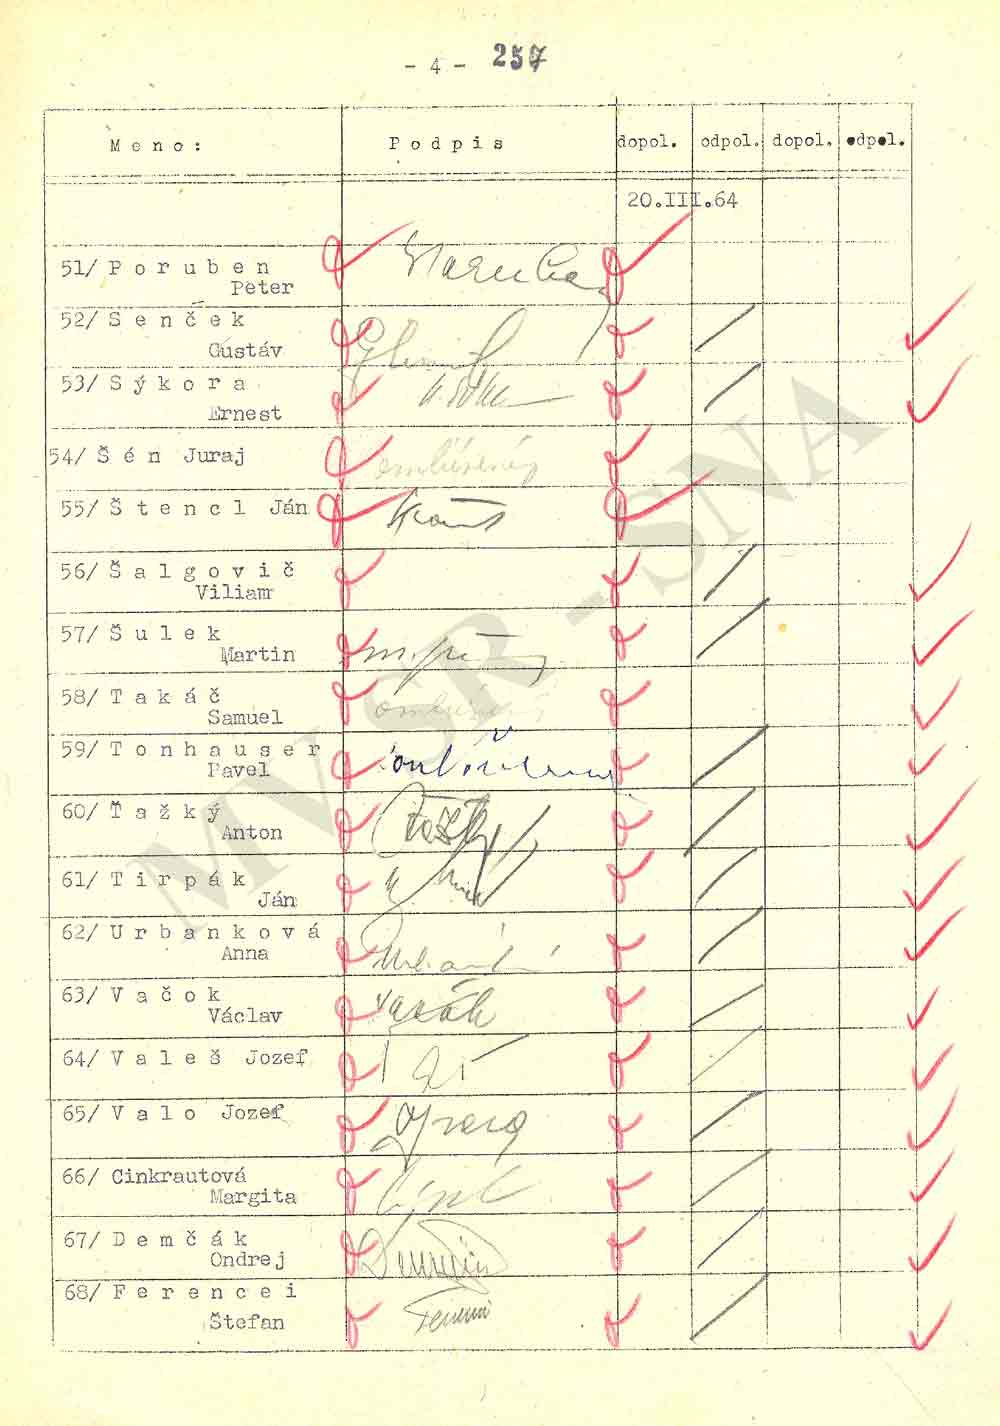 - 4 - 257
Meno: Podpis dopol. odpol. dopol. odpol.
20.III.64
51/ Poruben
Peter
52/ Senček
Gustáv
53/ Sýkora
Ernest
54/ Šén Juraj
ospravedlnený
55/ Štencl Ján
56/ Šalgovič
Viliam
57/ Šulek
Martin
58/ Takáč
Samuel
59/ Tonhauser
Pavel
60/ Ťažký
Anton
Ťažký
61/ Tirpák
Ján
62/ Urbanková
Anna
Urbanková
63/ Vačok
Václav
64/ Valeš Jozef
65/ Valo Jozef
66/ Cinkrautová
Margita
67/ Demčák
Ondrej
68/ Ferencei
Štefan
MV SR - SNA